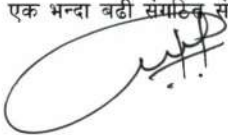 एक भन्दा बढी संगठित